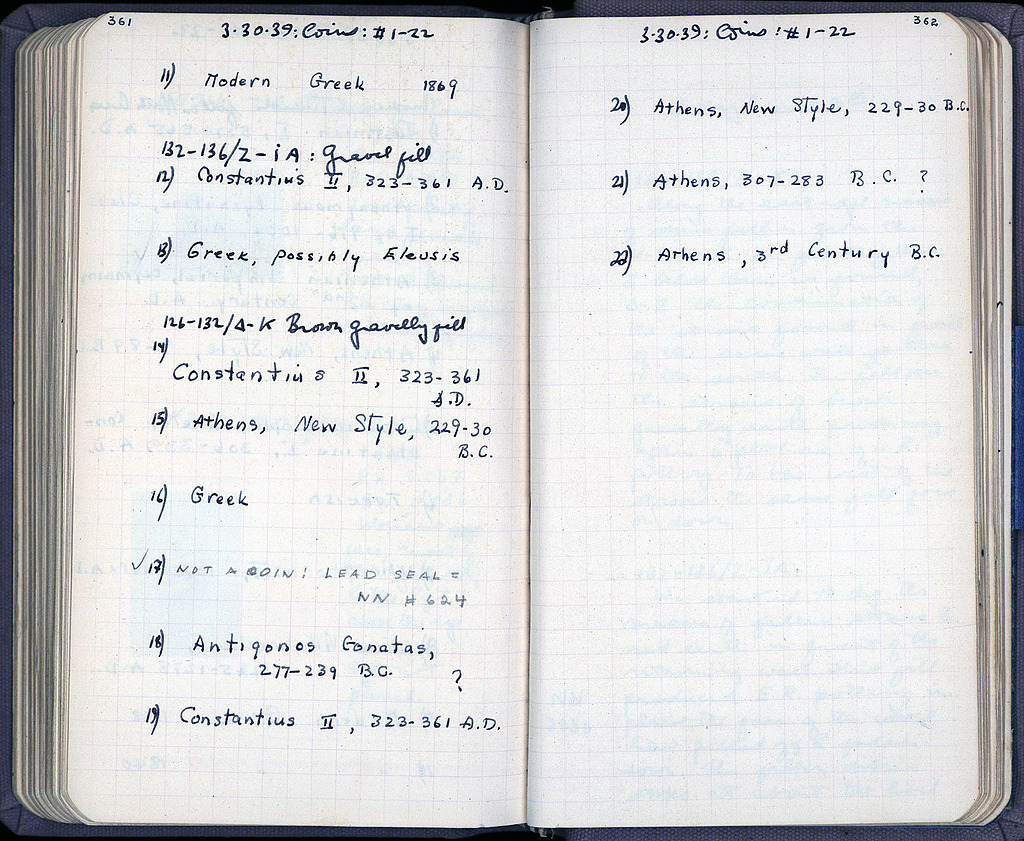 361
3·30·39: Coins: #1-22
11) Modern Greek 1869
132-136/Z-iA: Gravel fill
12) Constantius II, 323-361 A.D.
13) Greek, possibly Eleusis
126-132/Δ-K Brown gravelly fill
14)
Constantius II, 323-361
A.D.
15) Athens, New Style, 229-30
B.C.
16) Greek
✓17) NOT A COIN! LEAD SEAL =
NN #624
18) Antigonos Gonatas,
277-239 B.C. ?
19) Constantius II, 323-361 A.D.
362
3·30·39: Coins: #1-22
20) Athens, New Style, 229-30 B.C.
21) Athens, 307-283 B.C. ?
22) Athens, 3rd Century B.C.